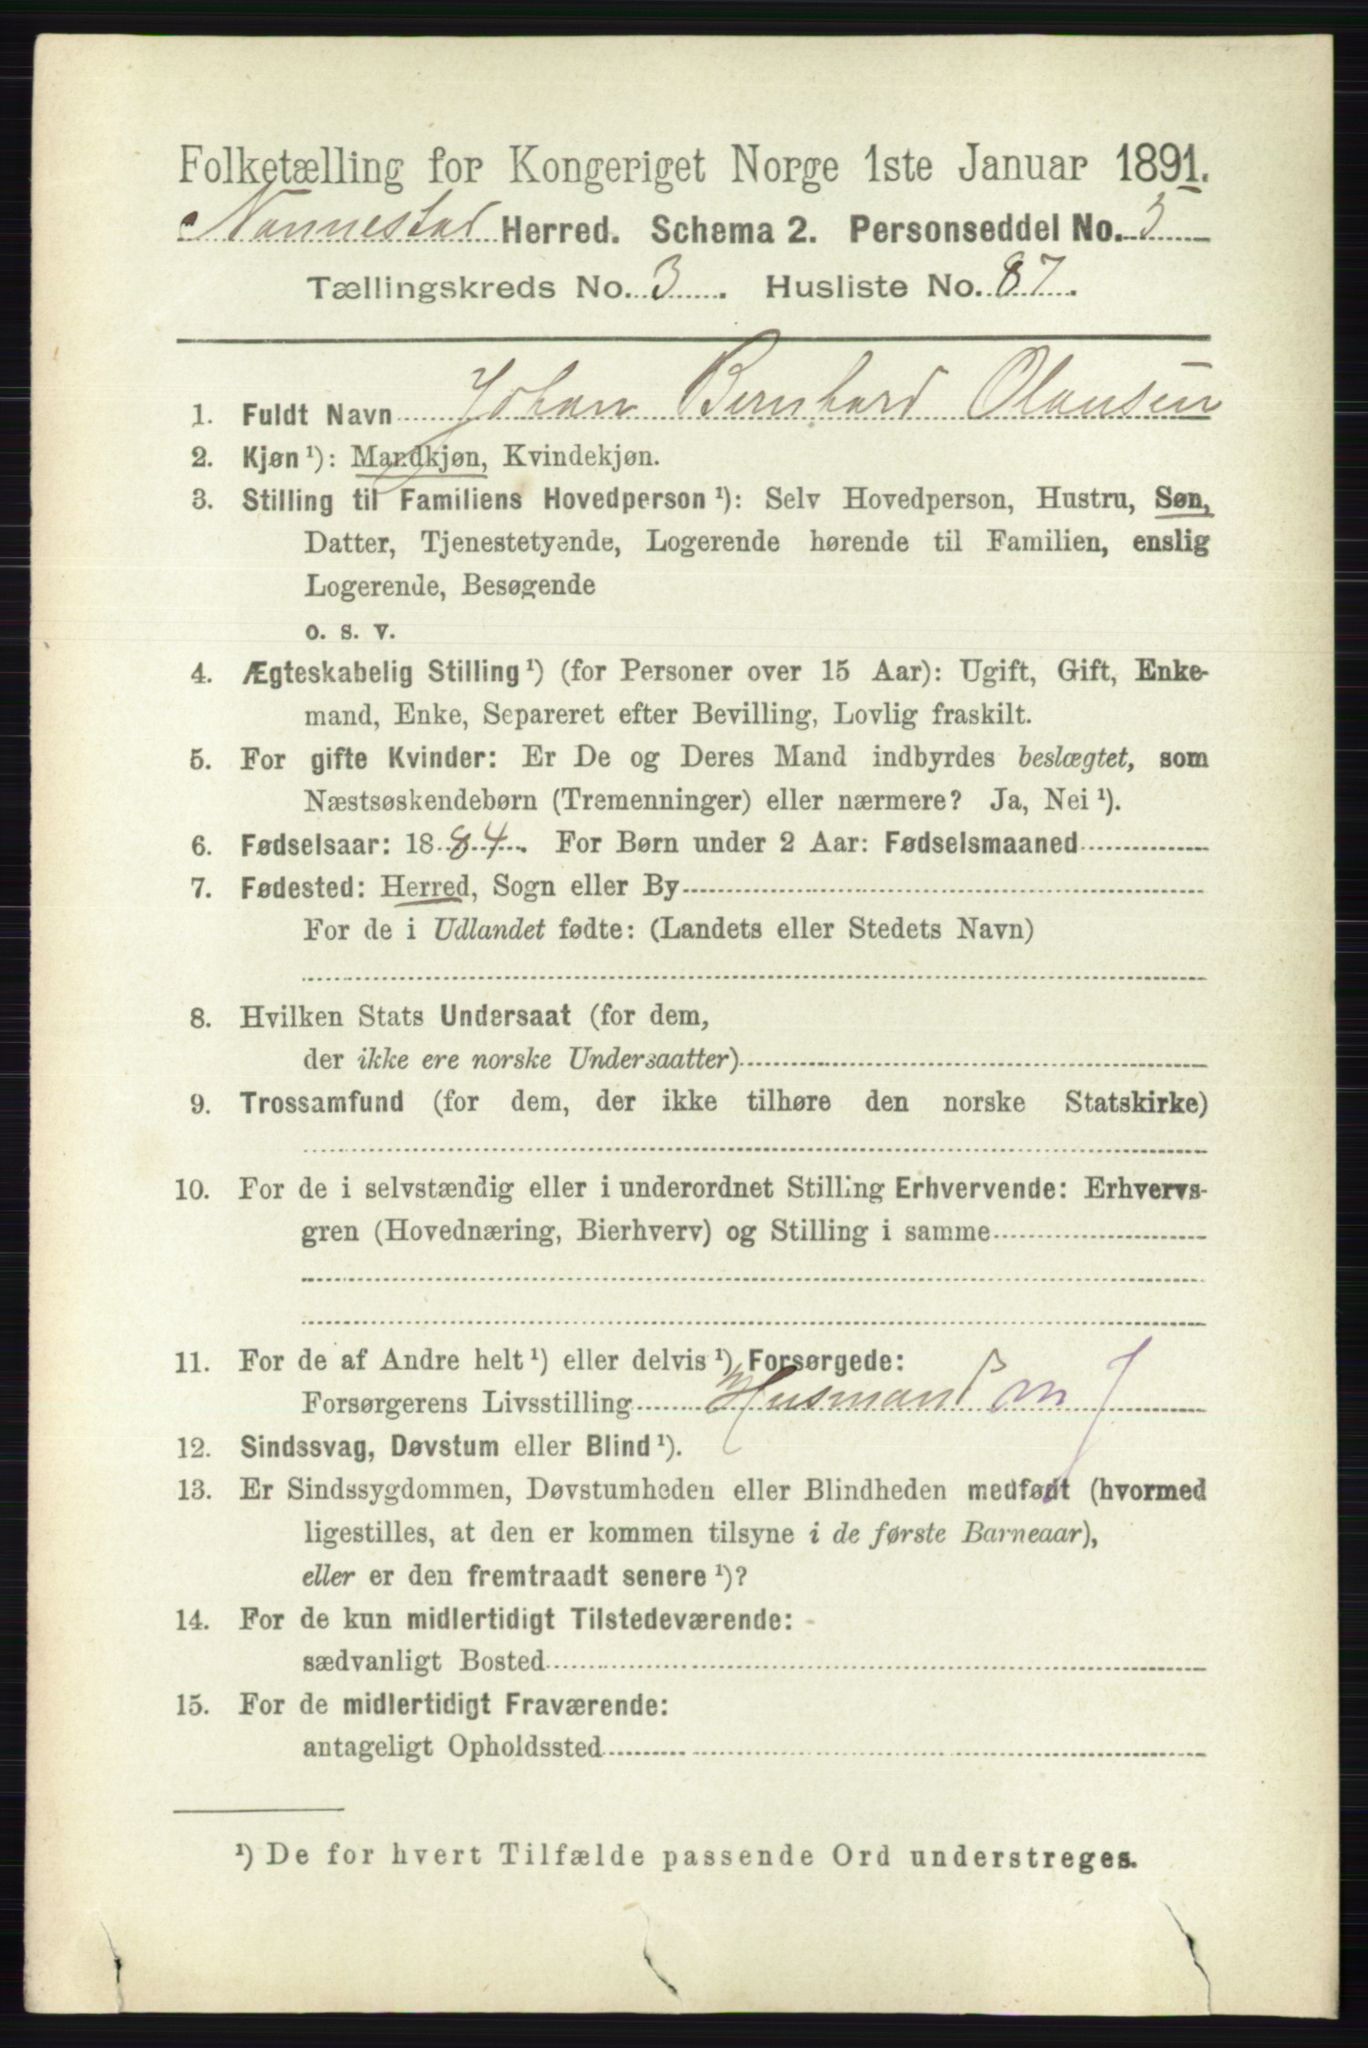 Folketælling for Kongeriget Norge 1ste Januar 1891.
Nannestad Herred. Schema 2. Personseddel No. 5
Tællingskreds No. 3. Husliste No. 87.
1. Fuldt Navn Johan Bernhard Olausen
2. Kjøn ¹): Mandkjøn, Kvindekjøn.
3. Stilling til Familiens Hovedperson ¹): Selv Hovedperson, Hustru, Søn,
Datter, Tjenestetyende, Logerende hørende til Familien, enslig
Logerende, Besøgende
o. s. v.
4. Ægteskabelig Stilling ¹) (for Personer over 15 Aar): Ugift, Gift, Enke-
mand, Enke, Separeret efter Bevilling, Lovlig fraskilt.
5. For gifte Kvinder: Er De og Deres Mand indbyrdes beslægtet, som
Næstsøskendebørn (Tremenninger) eller nærmere? Ja, Nei ¹).
6. Fødselsaar: 1884. For Børn under 2 Aar: Fødselsmaaned
7. Fødested: Herred, Sogn eller By
For de i Udlandet fødte: (Landets eller Stedets Navn)
8. Hvilken Stats Undersaat (for dem,
der ikke ere norske Undersaatter)
9. Trossamfund (for dem, der ikke tilhøre den norske Statskirke)
10. For de i selvstændig eller i underordnet Stilling Erhvervende: Erhvervs-
gren (Hovednæring, Bierhverv) og Stilling i samme
11. For de af Andre helt ¹) eller delvis ¹) Forsørgede:
Forsørgerens Livsstilling Husmand m J
12. Sindssvag, Døvstum eller Blind ¹).
13. Er Sindssygdommen, Døvstumheden eller Blindheden medfødt (hvormed
ligestilles, at den er kommen tilsyne i de første Barneaar),
eller er den fremtraadt senere ¹)?
14. For de kun midlertidigt Tilstedeværende:
sædvanligt Bosted
15. For de midlertidigt Fraværende:
antageligt Opholdssted
¹) De for hvert Tilfælde passende Ord understreges.